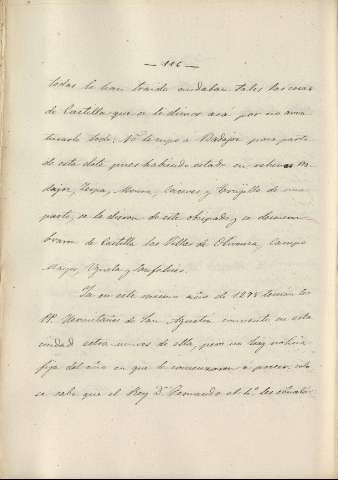 — 116 —
todas le han traido andaban tales las cosas
de Castilla que se le dieron acá por no aven
turarlo todo: No tocó a Badajoz poca parte
de esta dote pues habiendo estado en rehenes Ba
dajoz, Serpa, Moura, Caceres y Trujillo de una
parte, se la dieron de este obispado, y se desmem
braron de Castilla las Villas de Olivenza, Campo
Mayor, Uguela y Sanfelices.
Ya en este mismo año de 1298 tenian los
PP. Hermitaños de San Agustin convento en esta
ciudad extra-muros de ella, pero no hay noticia
fija del año en que le comenzaron a poseer, solo
se sabe que el Rey D. Fernando el 4.º les